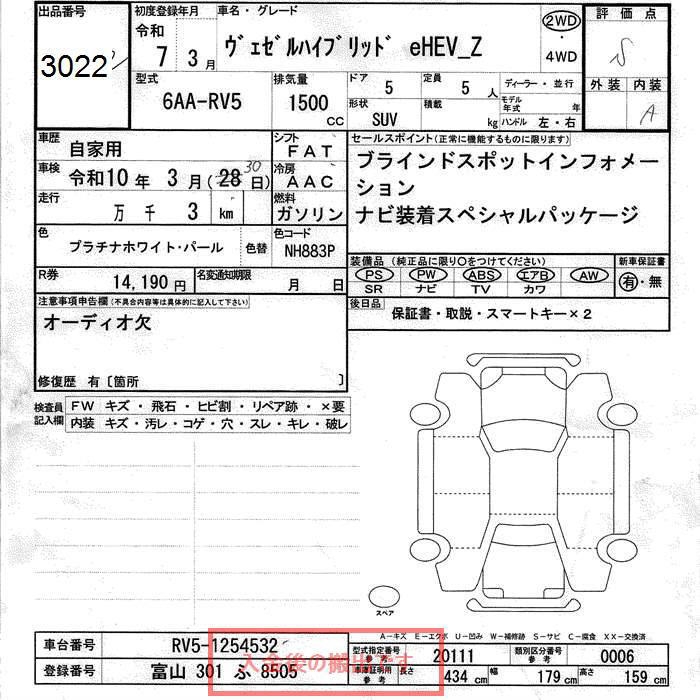 出品番号
3022
初度登録年月
令和
7 3月
車名・グレード
ヴェゼルハイブリッド eHEV_Z
2WD
・
4WD
評価点
S
外装 内装
A
型式
6AA-RV5
排気量
1500
cc
ドア
5
定員
5人
形状
SUV
積載
kg
ディーラー・並行
モデル年式 年
ハンドル 左・右
車歴
自家用
シフト
FAT
車検
令和10年 3月(28日)
30
冷房
AAC
走行
万 千 3 km
燃料
ガソリン
色
プラチナホワイト・パール
色替
色コード
NH883P
R券
14,190円
名変通知期限
月 日
セールスポイント(正常に機能するものに限ります)
ブラインドスポットインフォメー
ション
ナビ装着スペシャルパッケージ
装備品(純正品に限り○をつけてください)
PS PW ABS エアB AW
SR ナビ TV カワ
新車保証書
有・無
後日品
保証書・取説・スマートキー×2
注意事項申告欄(不具合内容等は具体的に記入して下さい)
オーディオ欠
修復歴 有〔箇所 〕
検査員
記入欄
FW キズ・飛石・ヒビ割・リペア跡・×要
内装 キズ・汚レ・コゲ・穴・スレ・キレ・破レ
スペア
A－キズ E－エクボ U－凹み W－補修跡 S－サビ C－腐食 XX－交換済
車台番号
RV5-1254532
型式指定番号
参考
20111
類別区分番号
参考
0006
登録番号
富山 301 ふ 8505
車庫証明用
参考
長さ
434cm
幅
179cm
高さ
159cm
入金後の搬出です